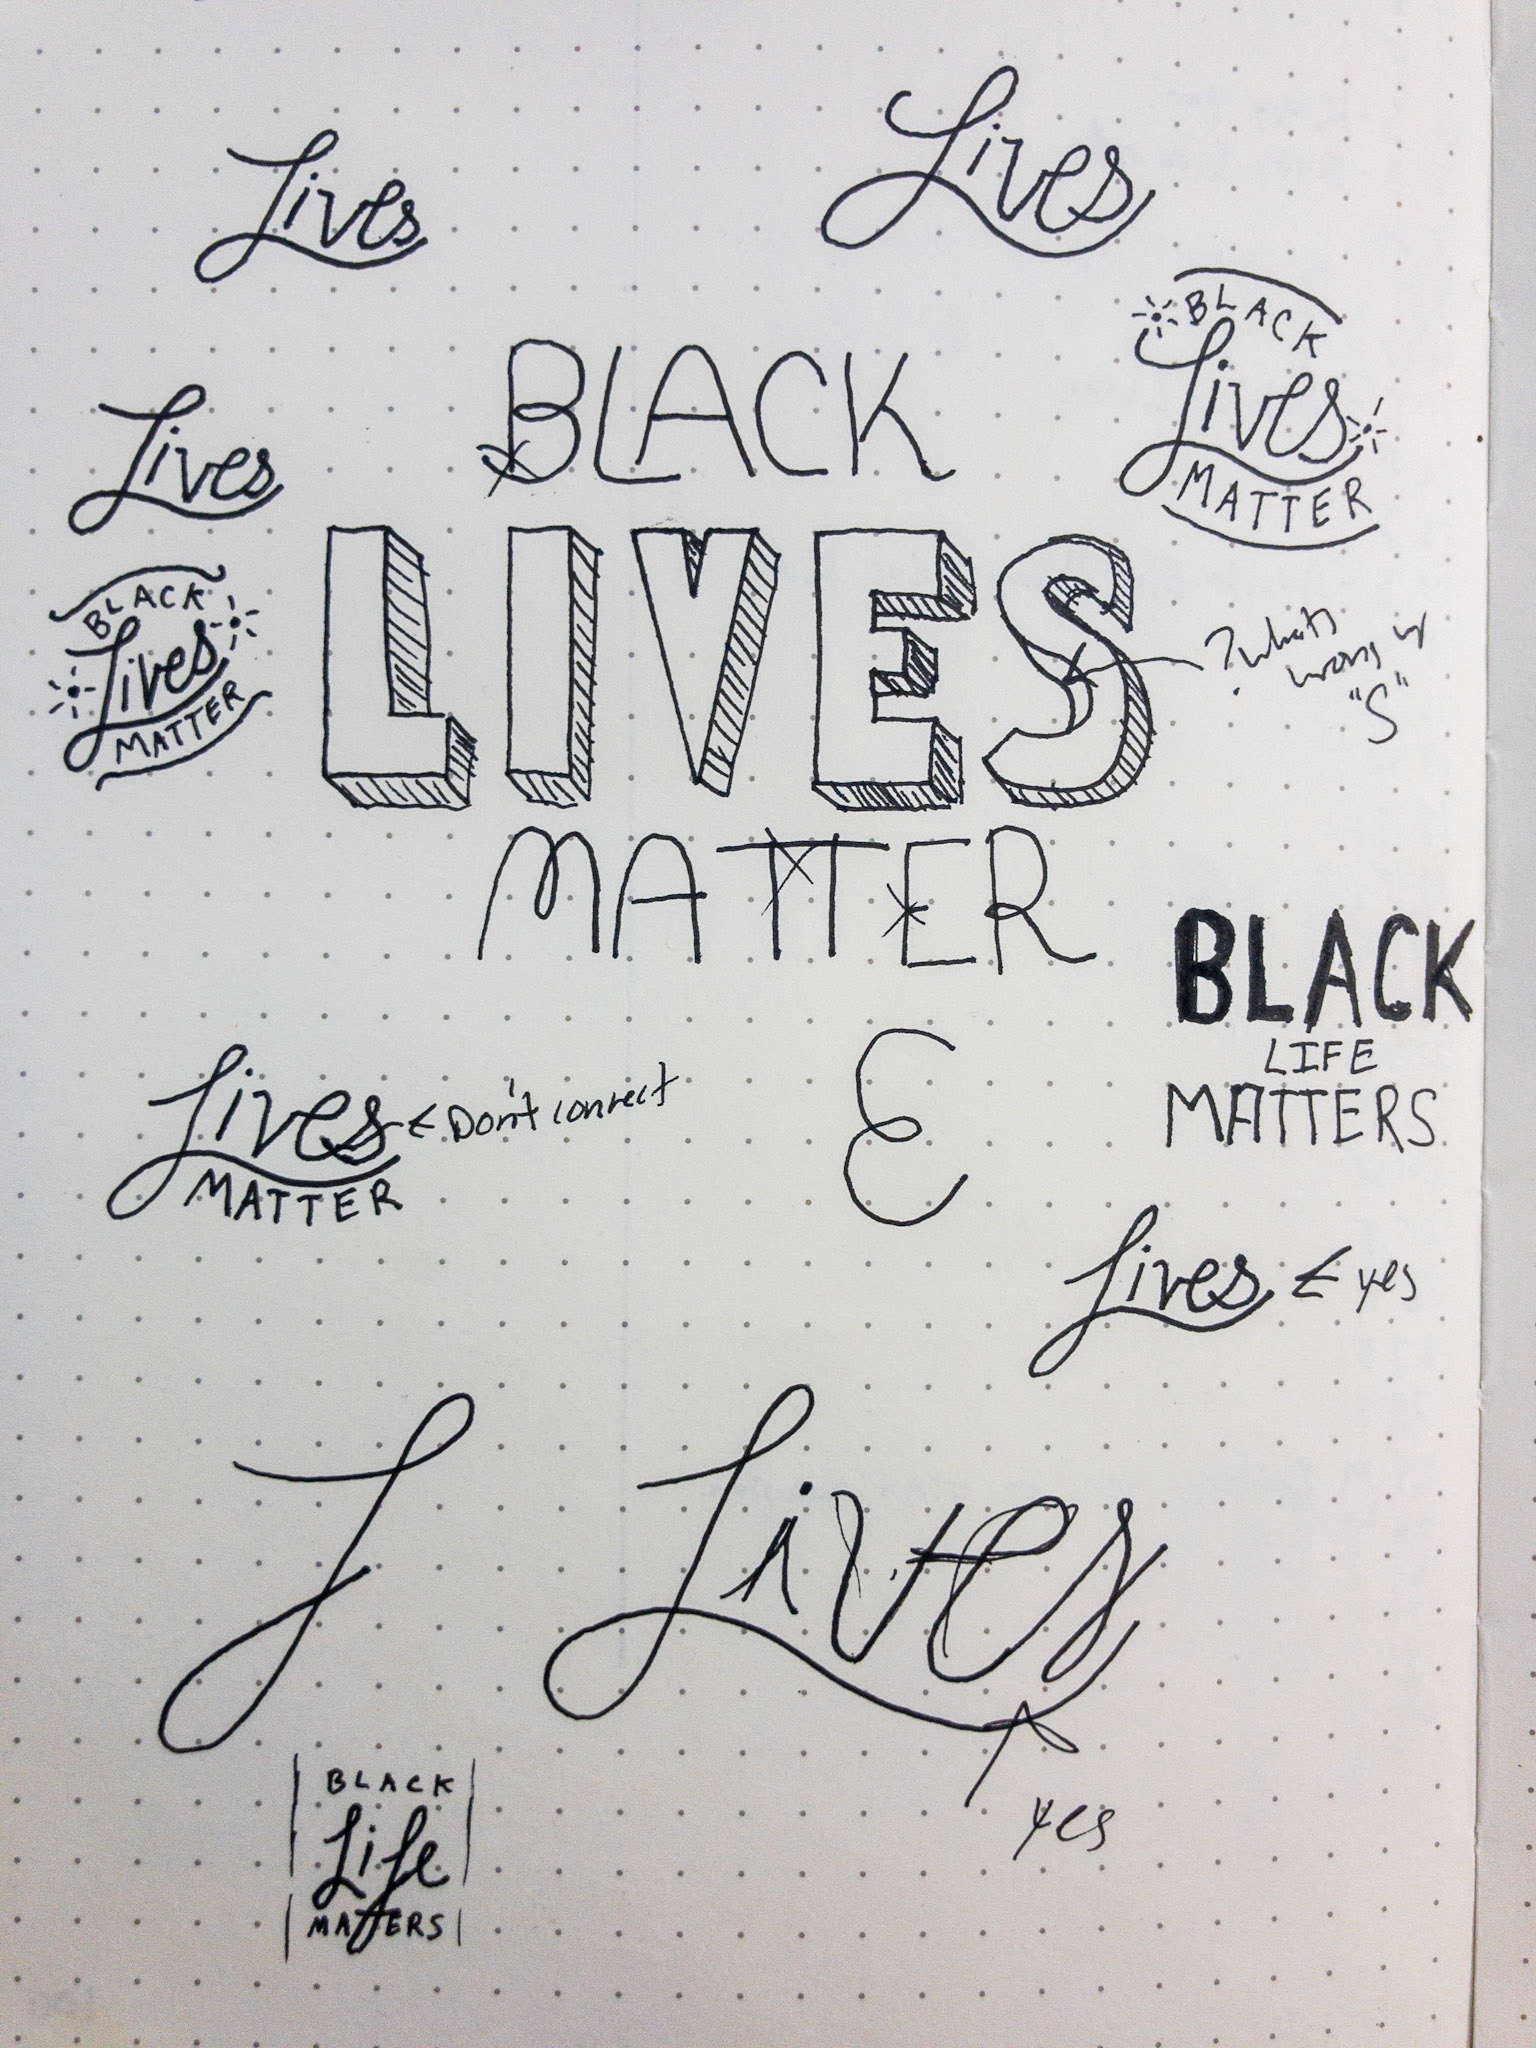 Lives
Lives
BLACK
Lives
MATTER
BLACK
LIVES
MATTER
Lives
BLACK
Lives
MATTER
? whats
wrong w
"S"
BLACK
LIFE
MATTERS
Lives
MATTER
← Don't connect
E
Lives ← yes
L
Lives
yes
BLACK
Life
MATTERS